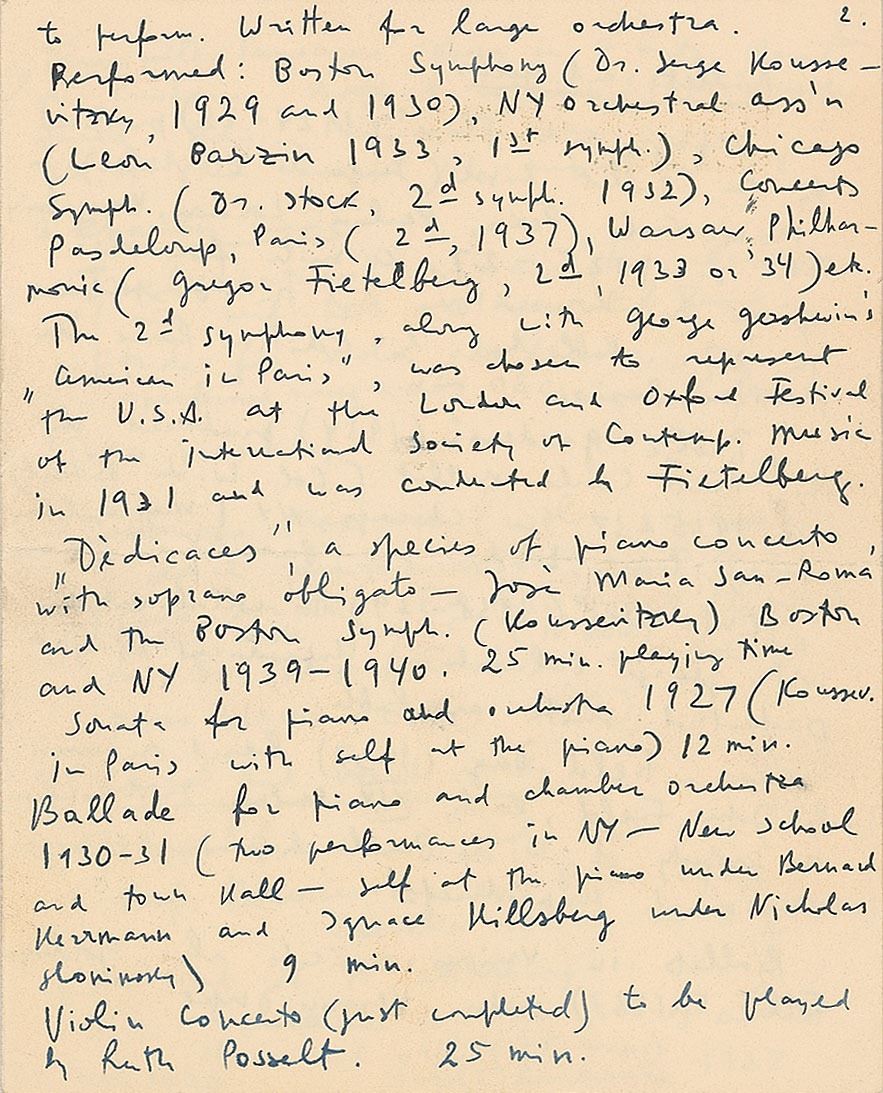 2.
to perform. Written for large orchestra.
Performed: Boston Symphony (Dr. Serge Kousse-
vitzky, 1929 and 1930), NY Orchestral ass'n
(Leon Barzin 1933, 1st symph.), Chicago
Symph. (Dr. Stock, 2d symph. 1932), Concerts
Pasdeloup, Paris (2d, 1937), Warsaw Philhar-
monic (Gregor Fietelberg, 2d, 1933 or '34) etc.
The 2d symphony, along with George Gershwin's
"American in Paris", was chosen to represent
the U.S.A. at the London and Oxford Festival
of the International Society of Contemp. Music
in 1931 and was conducted by Fietelberg.
"Dédicaces", a species of piano concerto,
with soprano obligato — José Maria San-Romá
and the Boston Symph. (Koussevitzky) Boston
and NY 1939-1940. 25 min. playing time
Sonata for piano and orchestra 1927 (Koussev.
in Paris with self at the piano) 12 min.
Ballade for piano and chamber orchestra
1930-31 (two performances in NY — New School
and Town Hall — self at the piano under Bernard
Herrmann and Ignace Hillsberg under Nicholas
Slonimsky) 9 min.
Violin Concerto (just completed) to be played
by Ruth Posselt. 25 min.